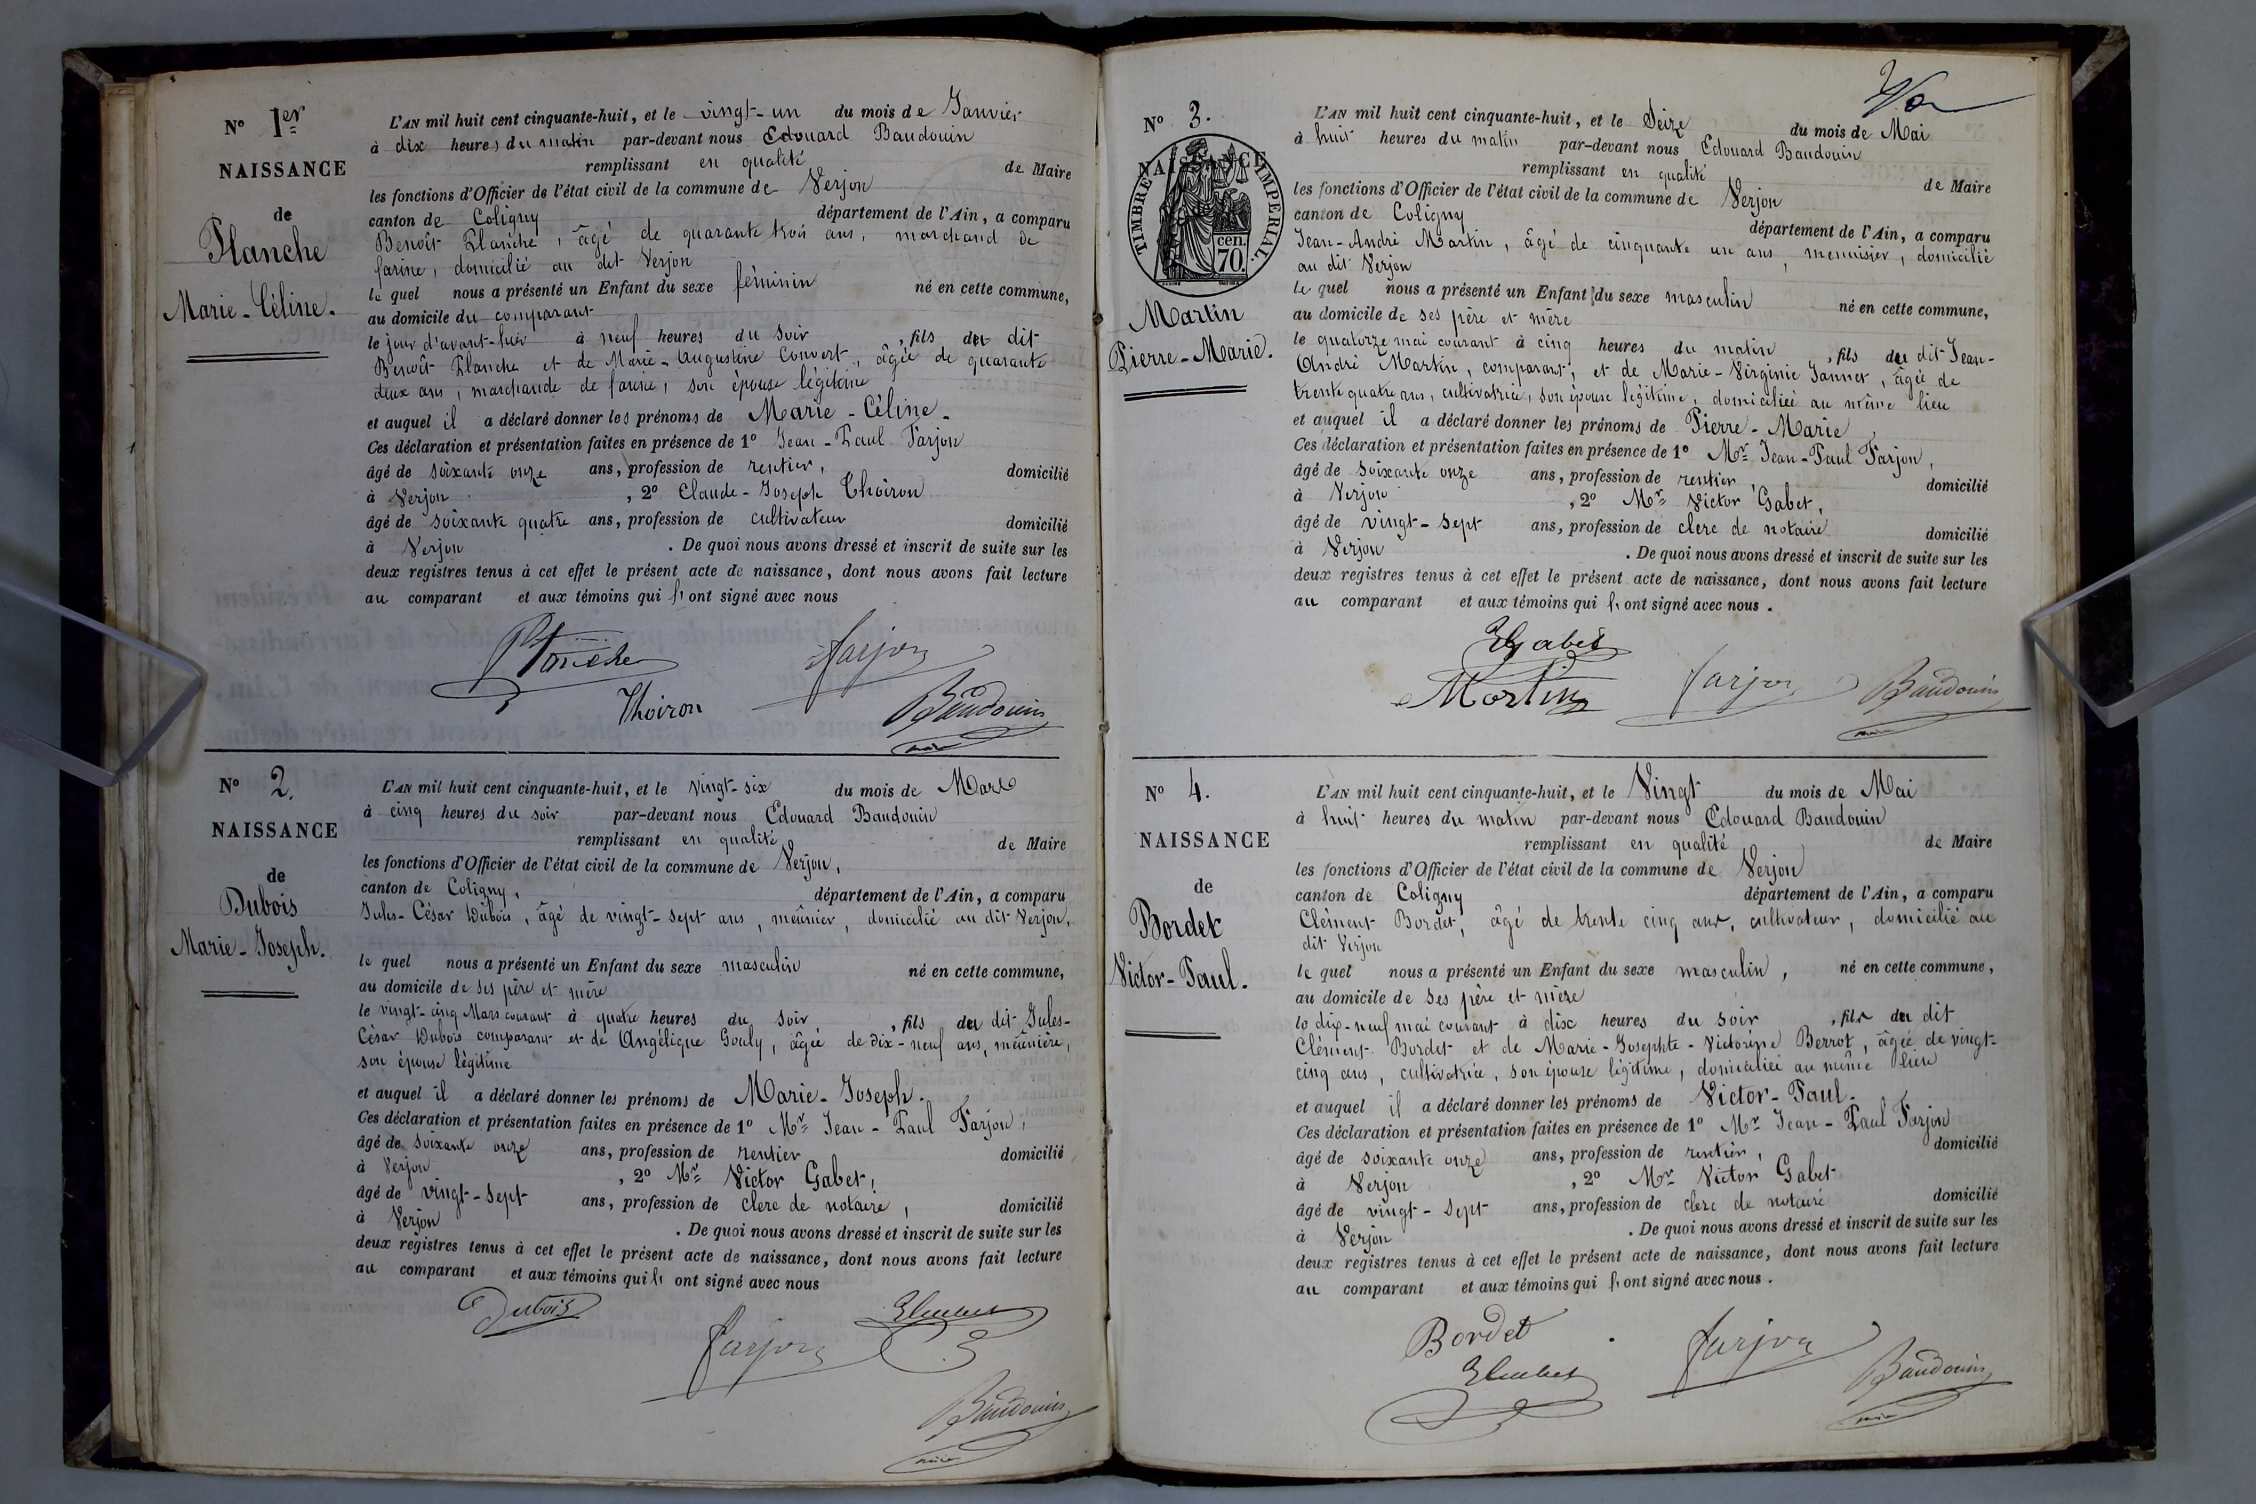 N° 1er
NAISSANCE
de
Planche
Marie-Céline.
L'AN mil huit cent cinquante-huit, et le vingt-un du mois de Janvier
à dix heures du matin par-devant nous Edouard Baudouin
remplissant en qualité de Maire
les fonctions d'Officier de l'état civil de la commune de Verjon
canton de Coligny département de l'Ain, a comparu
Benoît Planche, âgé de quarante trois ans, marchand de
farine, domicilié au dit Verjon
le quel nous a présenté un Enfant du sexe féminin né en cette commune,
au domicile du comparant
le jour d'avant-hier à neuf heures du soir, fils du dit
Benoît Planche et de Marie-Augustine Convert, âgée de quarante
deux ans, marchande de farine, son épouse légitime
et auquel il a déclaré donner les prénoms de Marie-Céline.
Ces déclaration et présentation faites en présence de 1° Jean-Paul Farjon
âgé de soixante onze ans, profession de rentier, domicilié
à Verjon, 2° Claude-Joseph Thoiron
âgé de soixante quatre ans, profession de cultivateur domicilié
à Verjon. De quoi nous avons dressé et inscrit de suite sur les
deux registres tenus à cet effet le présent acte de naissance, dont nous avons fait lecture
au comparant et aux témoins qui ont signé avec nous
Planche Farjon
Thoiron Baudouin
maire
N° 2.
NAISSANCE
de
Dubois
Marie-Joseph.
L'AN mil huit cent cinquante-huit, et le vingt-six du mois de Mars
à cinq heures du soir par-devant nous Edouard Baudouin
remplissant en qualité de Maire
les fonctions d'Officier de l'état civil de la commune de Verjon,
canton de Coligny, département de l'Ain, a comparu
Jules-César Dubois, âgé de vingt-sept ans, meûnier, domicilié au dit Verjon,
le quel nous a présenté un Enfant du sexe masculin né en cette commune,
au domicile de ses père et mère
le vingt-cinq Mars courant à quatre heures du soir, fils du dit Jules-
César Dubois comparant et de Angélique Gouly, âgée de dix-neuf ans, meûnière,
son épouse légitime
et auquel il a déclaré donner les prénoms de Marie-Joseph.
Ces déclaration et présentation faites en présence de 1° Mr Jean-Paul Farjon,
âgé de soixante onze ans, profession de rentier domicilié
à Verjon, 2° Mr Victor Gabet,
âgé de vingt-sept ans, profession de clerc de notaire, domicilié
à Verjon. De quoi nous avons dressé et inscrit de suite sur les
deux registres tenus à cet effet le présent acte de naissance, dont nous avons fait lecture
au comparant et aux témoins qui ont signé avec nous
Dubois Farjon
Baudouin
maire
N° 3.
NAISSANCE
TIMBRE IMPERIAL.
70 cen.
Martin
Pierre-Marie.
L'AN mil huit cent cinquante-huit, et le Seize du mois de Mai
à huit heures du matin par-devant nous Edouard Baudouin
remplissant en qualité de Maire
les fonctions d'Officier de l'état civil de la commune de Verjon
canton de Coligny département de l'Ain, a comparu
Jean-André Martin, âgé de cinquante un ans, menuisier, domicilié
au dit Verjon
le quel nous a présenté un Enfant du sexe masculin né en cette commune,
au domicile de ses père et mère
le quatorze mai courant à cinq heures du matin, fils du dit Jean-
André Martin, comparant, et de Marie-Virginie Jannet, âgée de
trente quatre ans, cultivatrice, son épouse légitime, domiciliée au même lieu
et auquel il a déclaré donner les prénoms de Pierre-Marie
Ces déclaration et présentation faites en présence de 1° Mr Jean-Paul Farjon,
âgé de soixante onze ans, profession de rentier, domicilié
à Verjon, 2° Mr Victor Gabet,
âgé de vingt-sept ans, profession de clerc de notaire domicilié
à Verjon. De quoi nous avons dressé et inscrit de suite sur les
deux registres tenus à cet effet le présent acte de naissance, dont nous avons fait lecture
au comparant et aux témoins qui ont signé avec nous.
Gabet
Martin Farjon Baudouin
maire
N° 4.
NAISSANCE
de
Bordet
Victor-Paul.
L'AN mil huit cent cinquante-huit, et le Vingt du mois de Mai
à huit heures du matin par-devant nous Edouard Baudouin
remplissant en qualité de Maire
les fonctions d'Officier de l'état civil de la commune de Verjon
canton de Coligny département de l'Ain, a comparu
Clément Bordet, âgé de trente cinq ans, cultivateur, domicilié au
dit Verjon
le quel nous a présenté un Enfant du sexe masculin, né en cette commune,
au domicile de ses père et mère
le dix-neuf mai courant à dix heures du soir, fils du dit
Clément Bordet et de Marie-Josephte-Victorine Berrot, âgée de vingt-
cinq ans, cultivatrice, son épouse légitime, domiciliée au même lieu
et auquel il a déclaré donner les prénoms de Victor-Paul.
Ces déclaration et présentation faites en présence de 1° Mr Jean-Paul Farjon
âgé de soixante onze ans, profession de rentier, domicilié
à Verjon, 2° Mr Victor Gabet
âgé de vingt-sept ans, profession de clerc de notaire domicilié
à Verjon. De quoi nous avons dressé et inscrit de suite sur les
deux registres tenus à cet effet le présent acte de naissance, dont nous avons fait lecture
au comparant et aux témoins qui ont signé avec nous.
Bordet Farjon
Baudouin
maire